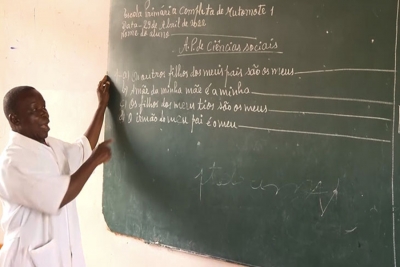 Escola Primária Completa de Mutomote 1
Data 29 de Abril de 2022
Nome do aluno
A.P. de Ciências sociais
a) Os outros filhos dos meus pais são os meus
b) A mãe da minha mãe é a minha
c) Os filhos dos meus tios são os meus
d) O irmão do meu pai é o meu